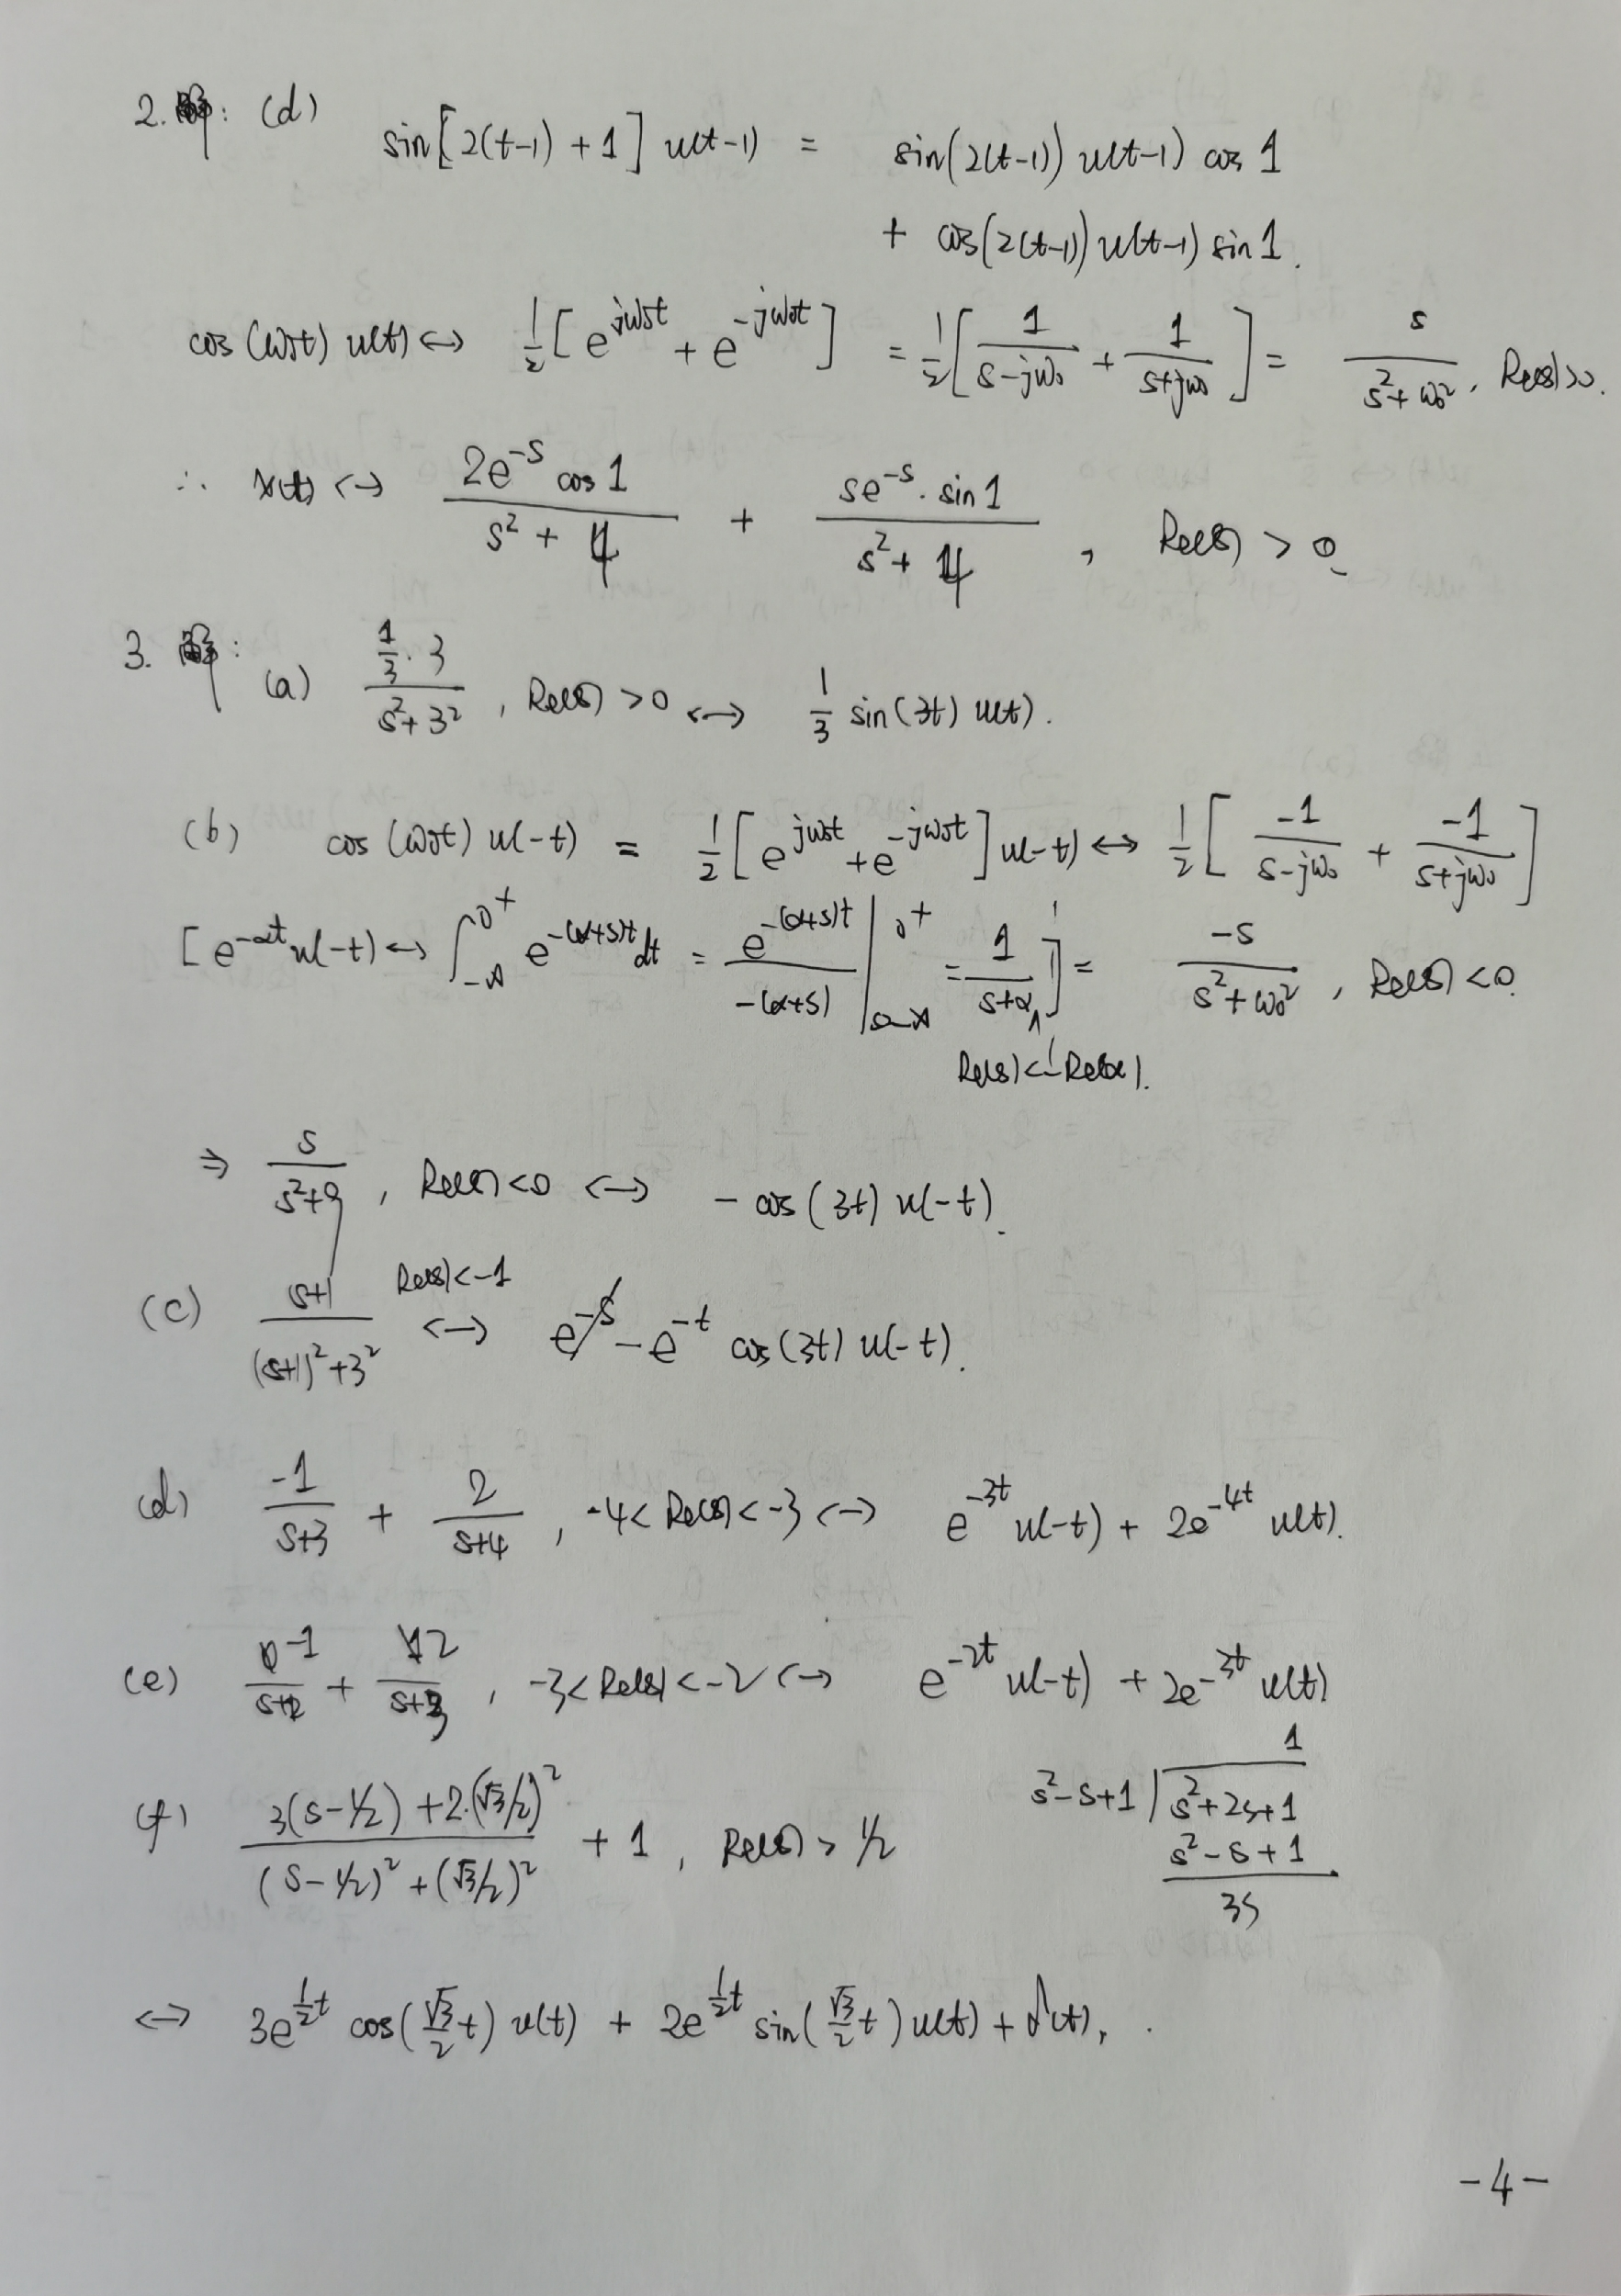 2. 解: (d) sin[2(t-1)+1] u(t-1) = sin(2(t-1)) u(t-1) cos 1
+ cos(2(t-1)) u(t-1) sin 1.
cos(ω₀t) u(t) ↔ 1/2 [e^{jω₀t} + e^{-jω₀t}] = 1/2 [1/(s-jω₀) + 1/(s+jω₀)] = s/(s²+ω₀²), Re(s)>0.
∴ x(t) ↔ 2e^{-s} cos 1/(s²+4) + se^{-s}·sin 1/(s²+4), Re(s) > 0.
3. 解:
(a) (1/3·3)/(s²+3²), Re(s) > 0 ↔ 1/3 sin(3t) u(t).
(b) cos(ω₀t) u(-t) = 1/2 [e^{jω₀t} + e^{-jω₀t}] u(-t) ↔ 1/2 [-1/(s-jω₀) + -1/(s+jω₀)]
[e^{-αt} u(-t) ↔ ∫_{-∞}^{0⁺} e^{-(α+s)t} dt = e^{-(α+s)t}/(-(α+s)) |_{-∞}^{0⁺} = -1/(s+α), Re(s)<-Re(α).] = -s/(s²+ω₀²), Re(s) < 0.
⇒ s/(s²+9), Re(s)<0 ↔ - cos(3t) u(-t).
(c) (s+1)/((s+1)²+3²) Re(s)<-1 ↔ -e^{-t} cos(3t) u(-t).
(d) -1/(s+3) + 2/(s+4), -4< Re(s) < -3 ↔ e^{-3t} u(-t) + 2e^{-4t} u(t).
(e) -1/(s+2) + 2/(s+3), -3< Re(s) < -2 ↔ e^{-2t} u(-t) + 2e^{-3t} u(t)
(f) (3(s-1/2) + 2·(√3/2)²)/((s-1/2)² + (√3/2)²) + 1, Re(s) > 1/2
1
s²-s+1 ) s²+2s+1
s²-s+1
3s
↔ 3e^{1/2 t} cos(√3/2 t) u(t) + 2e^{1/2 t} sin(√3/2 t) u(t) + δ(t).
-4-